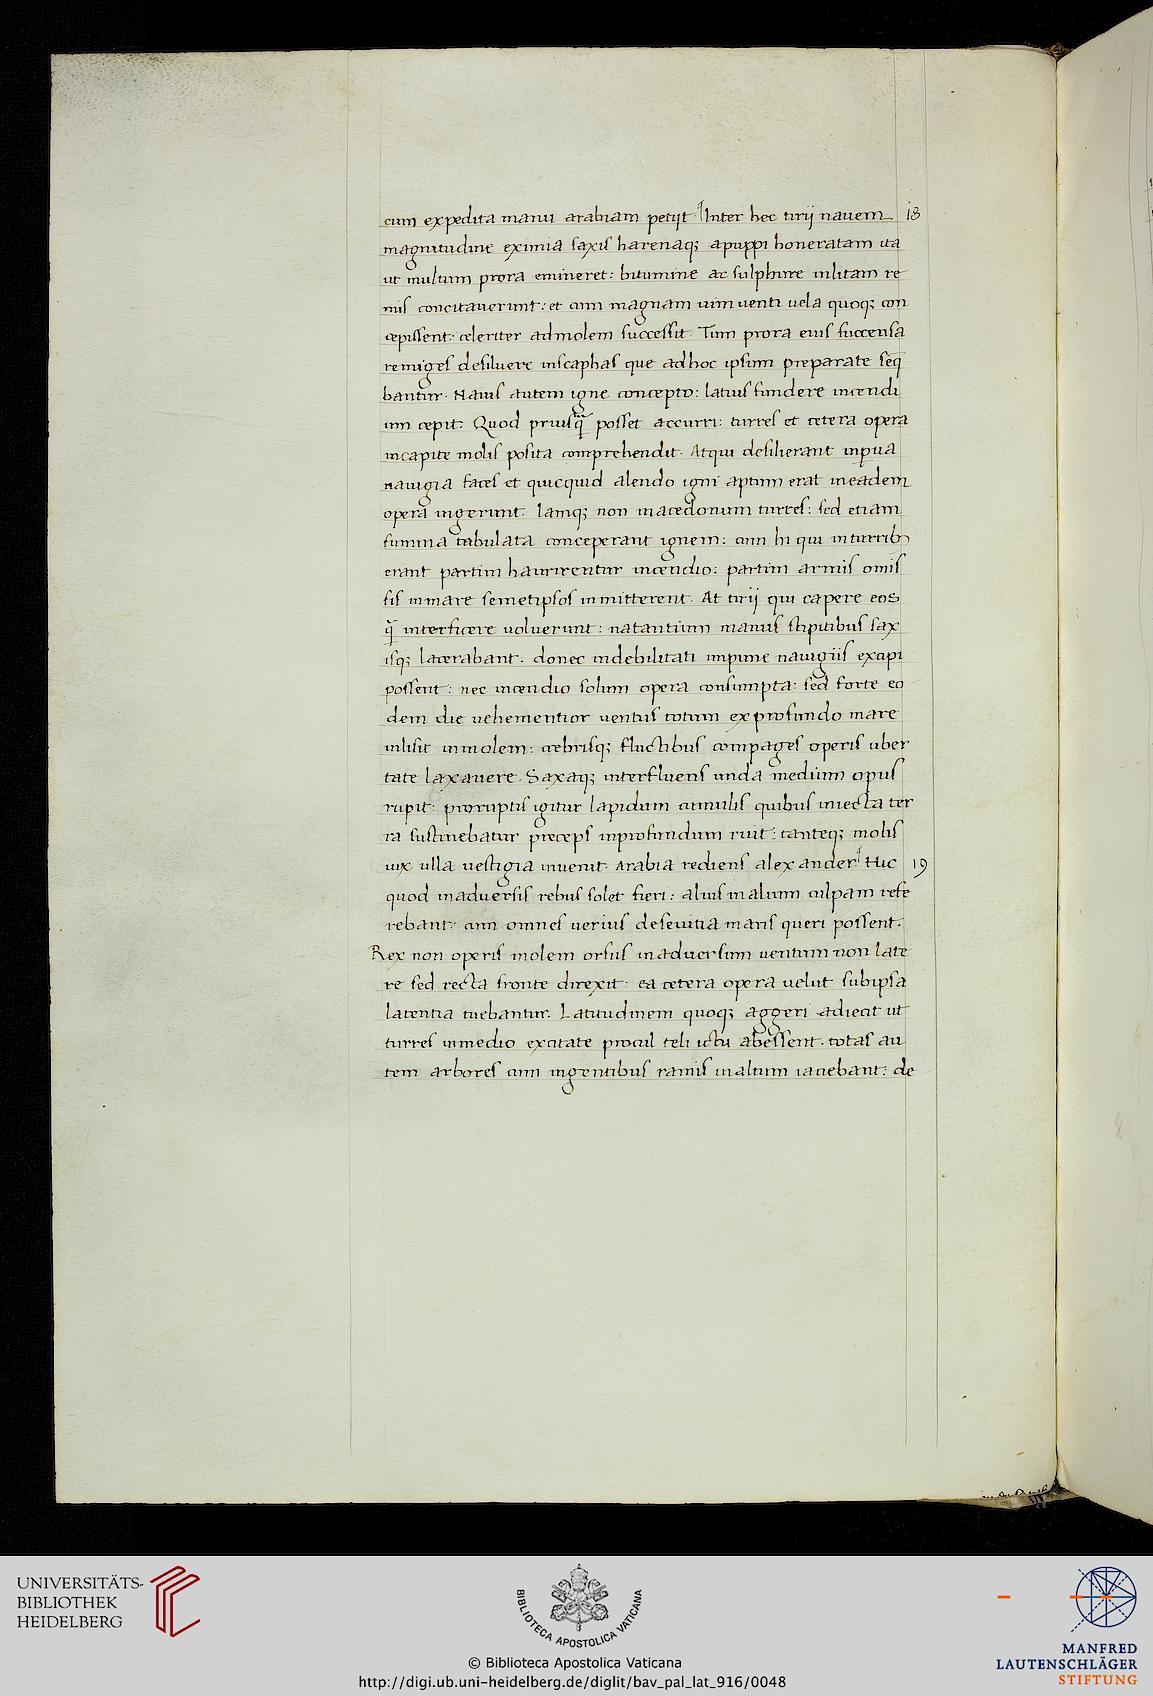 cum expedita manu arabiam petiit. Inter hec tirij nauem 18
magnitudine eximia saxis harenaq; apuppi honeratam ita
ut multum prora emineret: bitumine ac sulphure inlitam re
mis concitauerunt: et cum magnam uim uenti uela quoq; con
cepissent. celeriter admolem successit. Tum prora eius succensa
remiges desiluere inscaphas que adhoc ipsum preparate seq̄
bantur. Nauis autem igne concepto: latius fundere incendi
um cepit: Quod priusq̃ posset accurri: turres et cetera opera
incapite molis posita comprehendit. Atqui desilierant inꝑua
nauigia faces et quicquid alendo igni aptum erat ineadem
opera ingerunt. Iamq; non macedonum turres: sed etiam
summa tabulata conceperant ignem: cum hi qui inturrib;
erant partim haurirentur incendio: partim armis omis
sis inmare semetipsos inmitterent. At tirij qui capere eos
q̃ interficere uoluerunt: natantium manus stipitibus sax
isq; lacerabant: donec indebilitati impune nauigiis excipi
possent: nec incendio solum opera consumpta: sed forte eo
dem die uehementior uentus totum exprofundo mare
inlisit inmolem: crebrisq; fluctibus compages operis uber
tate laxauere. Saxaq; interfluens unda medium opus
rupit: proruptis igitur lapidum cumulis quibus iniecta ter
ra sustinebatur preceps inprofundum ruit: tanteq; molis
uix ulla uestigia inuenit. Arabia rediens alexander. Huc 19
quod inaduersis rebus solet fieri: alius inalium culpam refe
rebant: cum omnes uerius deseuitia maris queri possent.
Rex non operis molem orsus inaduersum uentum non late
re sed recta fronte direxit: ea cetera opera uelut subipsa
latentia tuebantur. Latitudinem quoq; aggeri adiecit ut
turres inmedio excitate procul teli ictu abessent. totas au
tem arbores cum ingentibus ramis inaltum iaciebant: de
UNIVERSITÄTS-
BIBLIOTHEK
HEIDELBERG
BIBLIOTECA APOSTOLICA VATICANA
MANFRED
LAUTENSCHLÄGER
STIFTUNG
© Biblioteca Apostolica Vaticana
http://digi.ub.uni-heidelberg.de/diglit/bav_pal_lat_916/0048